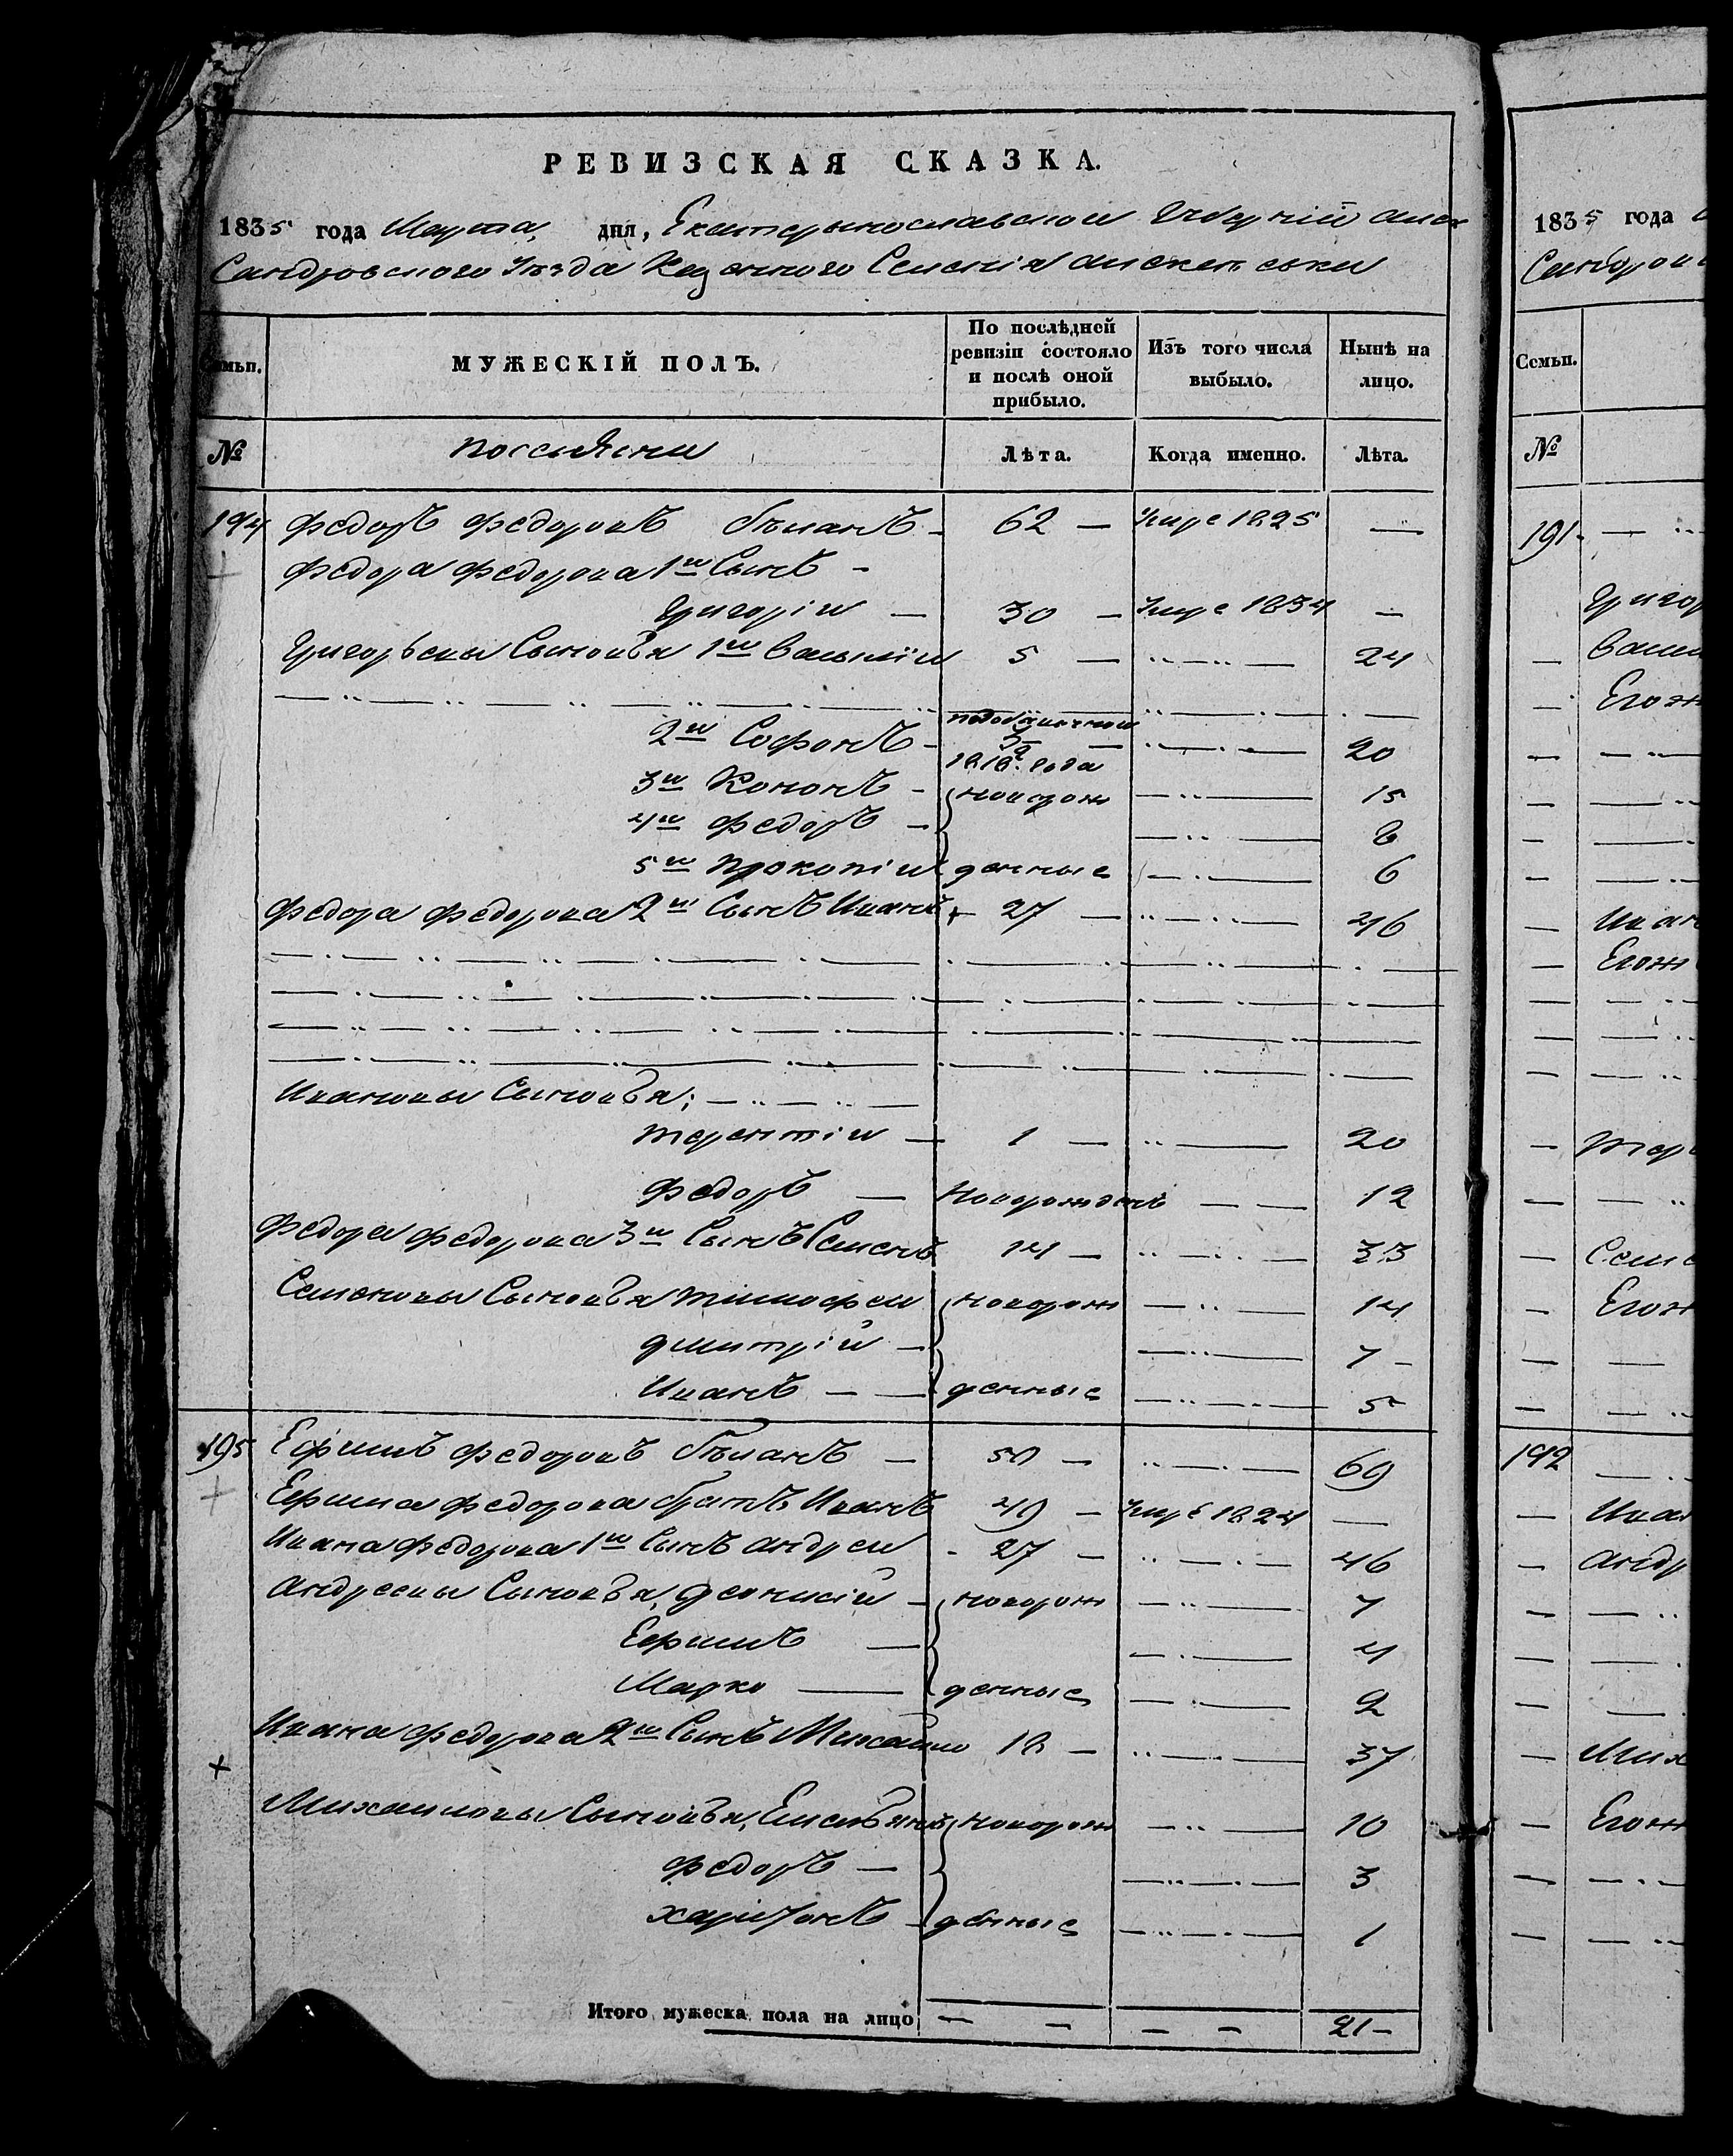 РЕВИЗСКАЯ СКАЗКА.
1835 года Марта, дня, Екатеринославской Губерніи Алек
Сандровского Уезда Казенного Селенія
Семьи. МУЖЕСКІЙ ПОЛЪ. По послѣдней ревизіи состояло и послѣ оной прибыло. Изъ того числа выбыло. Нынѣ на лицо.
№ Лѣта. Когда именно. Лѣта.
194 Федоръ Федоровъ Бѣланъ 62 — Умре 1825 —
Федора Федорова 1й Сынъ —
Григорій — 30 — Умре 1834 —
Григорьевы Сыновья 1й Василій 5 — 24
2й Софонъ — 20
1818 года
3й Кононъ — новорож 15
4й Федоръ — 8
5й Прокопій денные 6
Федора Федорова 2й Сынъ Иванъ 27 — 46
Ивановы Сыновья;
Терентій — 1 — 20
Федоръ — Новорожденъ 12
Федора Федорова 3й Сынъ Семенъ 14 — 33
Семеновы Сыновья Тимофей новорож 14
Дмитрій — 7
Иванъ — денные 5
195 Ефимъ Федоровъ Бѣланъ — 50 — 69
Ефима Федорова братъ Иванъ 49 — Умре 1824 —
Ивана Федорова 1й Сынъ Андрей 27 — 46
Андреевы Сыновья, Деонисій новорож 7
Ефимъ — 4
Марко — денные 2
Ивана Федорова 2й Сынъ Михайло 18 — 37
Михайловы Сыновья, Емельянъ новорож 10
Федоръ — 3
Харитонъ денные 1
Итого мужеска пола на лицо — — — — 21 —
1835 года
Семьи.
№
191
192